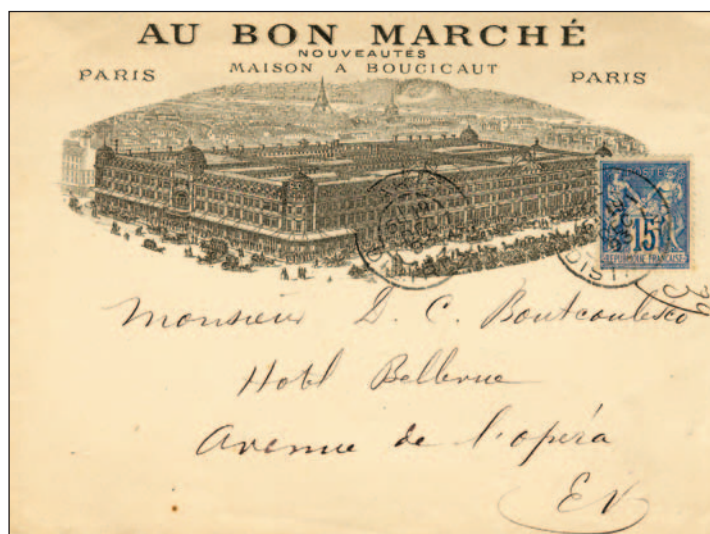 AU BON MARCHÉ
NOUVEAUTÉS
MAISON A BOUCICAUT
PARIS PARIS
POSTES
15
REPUBLIQUE FRANCAISE
Monsieur D. C. Boutcoulesco
Hotel Bellevue
Avenue de l'opéra
EV